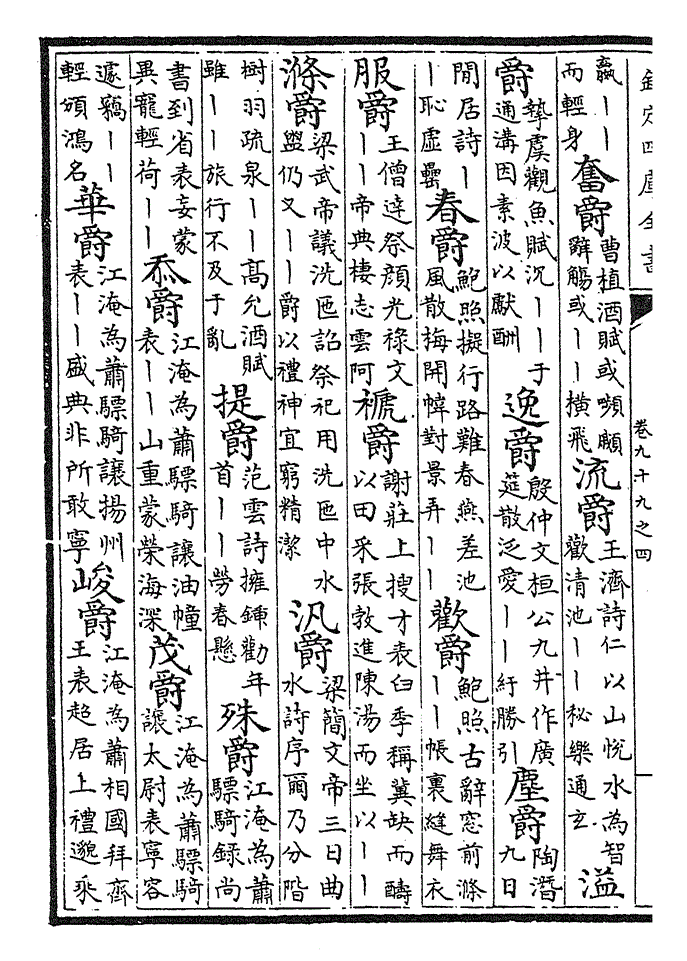 欽定四庫全書 卷九十九之四
羸｜｜而輕身 奮爵 曹植酒賦或嚬顑辭觴或｜｜橫飛 流爵 王濟詩仁以山悅水為智歡清池｜｜秘樂通玄 溢
爵 摯虞觀魚賦沉｜｜于通溝因素波以獻酬 逸爵 殷仲文桓公九井作廣筵散泛愛｜｜紆勝引 塵爵 陶潛九日
閒居詩｜｜恥虛罍 春爵 鮑照擬行路難春燕差池風散梅開幃對景弄｜｜ 歡爵 鮑照古辭窓前滌｜｜帳裏縫舞衣
服爵 王僧達祭顏光祿文｜｜帝典棲志雲阿 褫爵 謝莊上搜才表臼季稱冀缺而疇以田采張敦進陳湯而坐以｜｜
滌爵 梁武帝議洗匜詔祭祀用洗匜中水盥仍又｜｜爵以禮神宜窮精潔 汎爵 梁簡文帝三日曲水詩序爾乃分階
樹羽疏泉｜｜高允酒賦雖｜｜旅行不及于亂 提爵 范雲詩擁鍾勸年首｜｜勞春懸 殊爵 江淹為蕭驃騎録尚
書到省表妄蒙異寵輕荷｜｜ 忝爵 江淹為蕭驃騎讓油幢表｜｜山重蒙榮海深 茂爵 江淹為蕭驃騎讓太尉表寧容
遽竊｜｜輕頒鴻名 華爵 江淹為蕭驃騎讓揚州表｜｜盛典非所敢寧 峻爵 江淹為蕭相國拜齊王表超居上禮邈乘